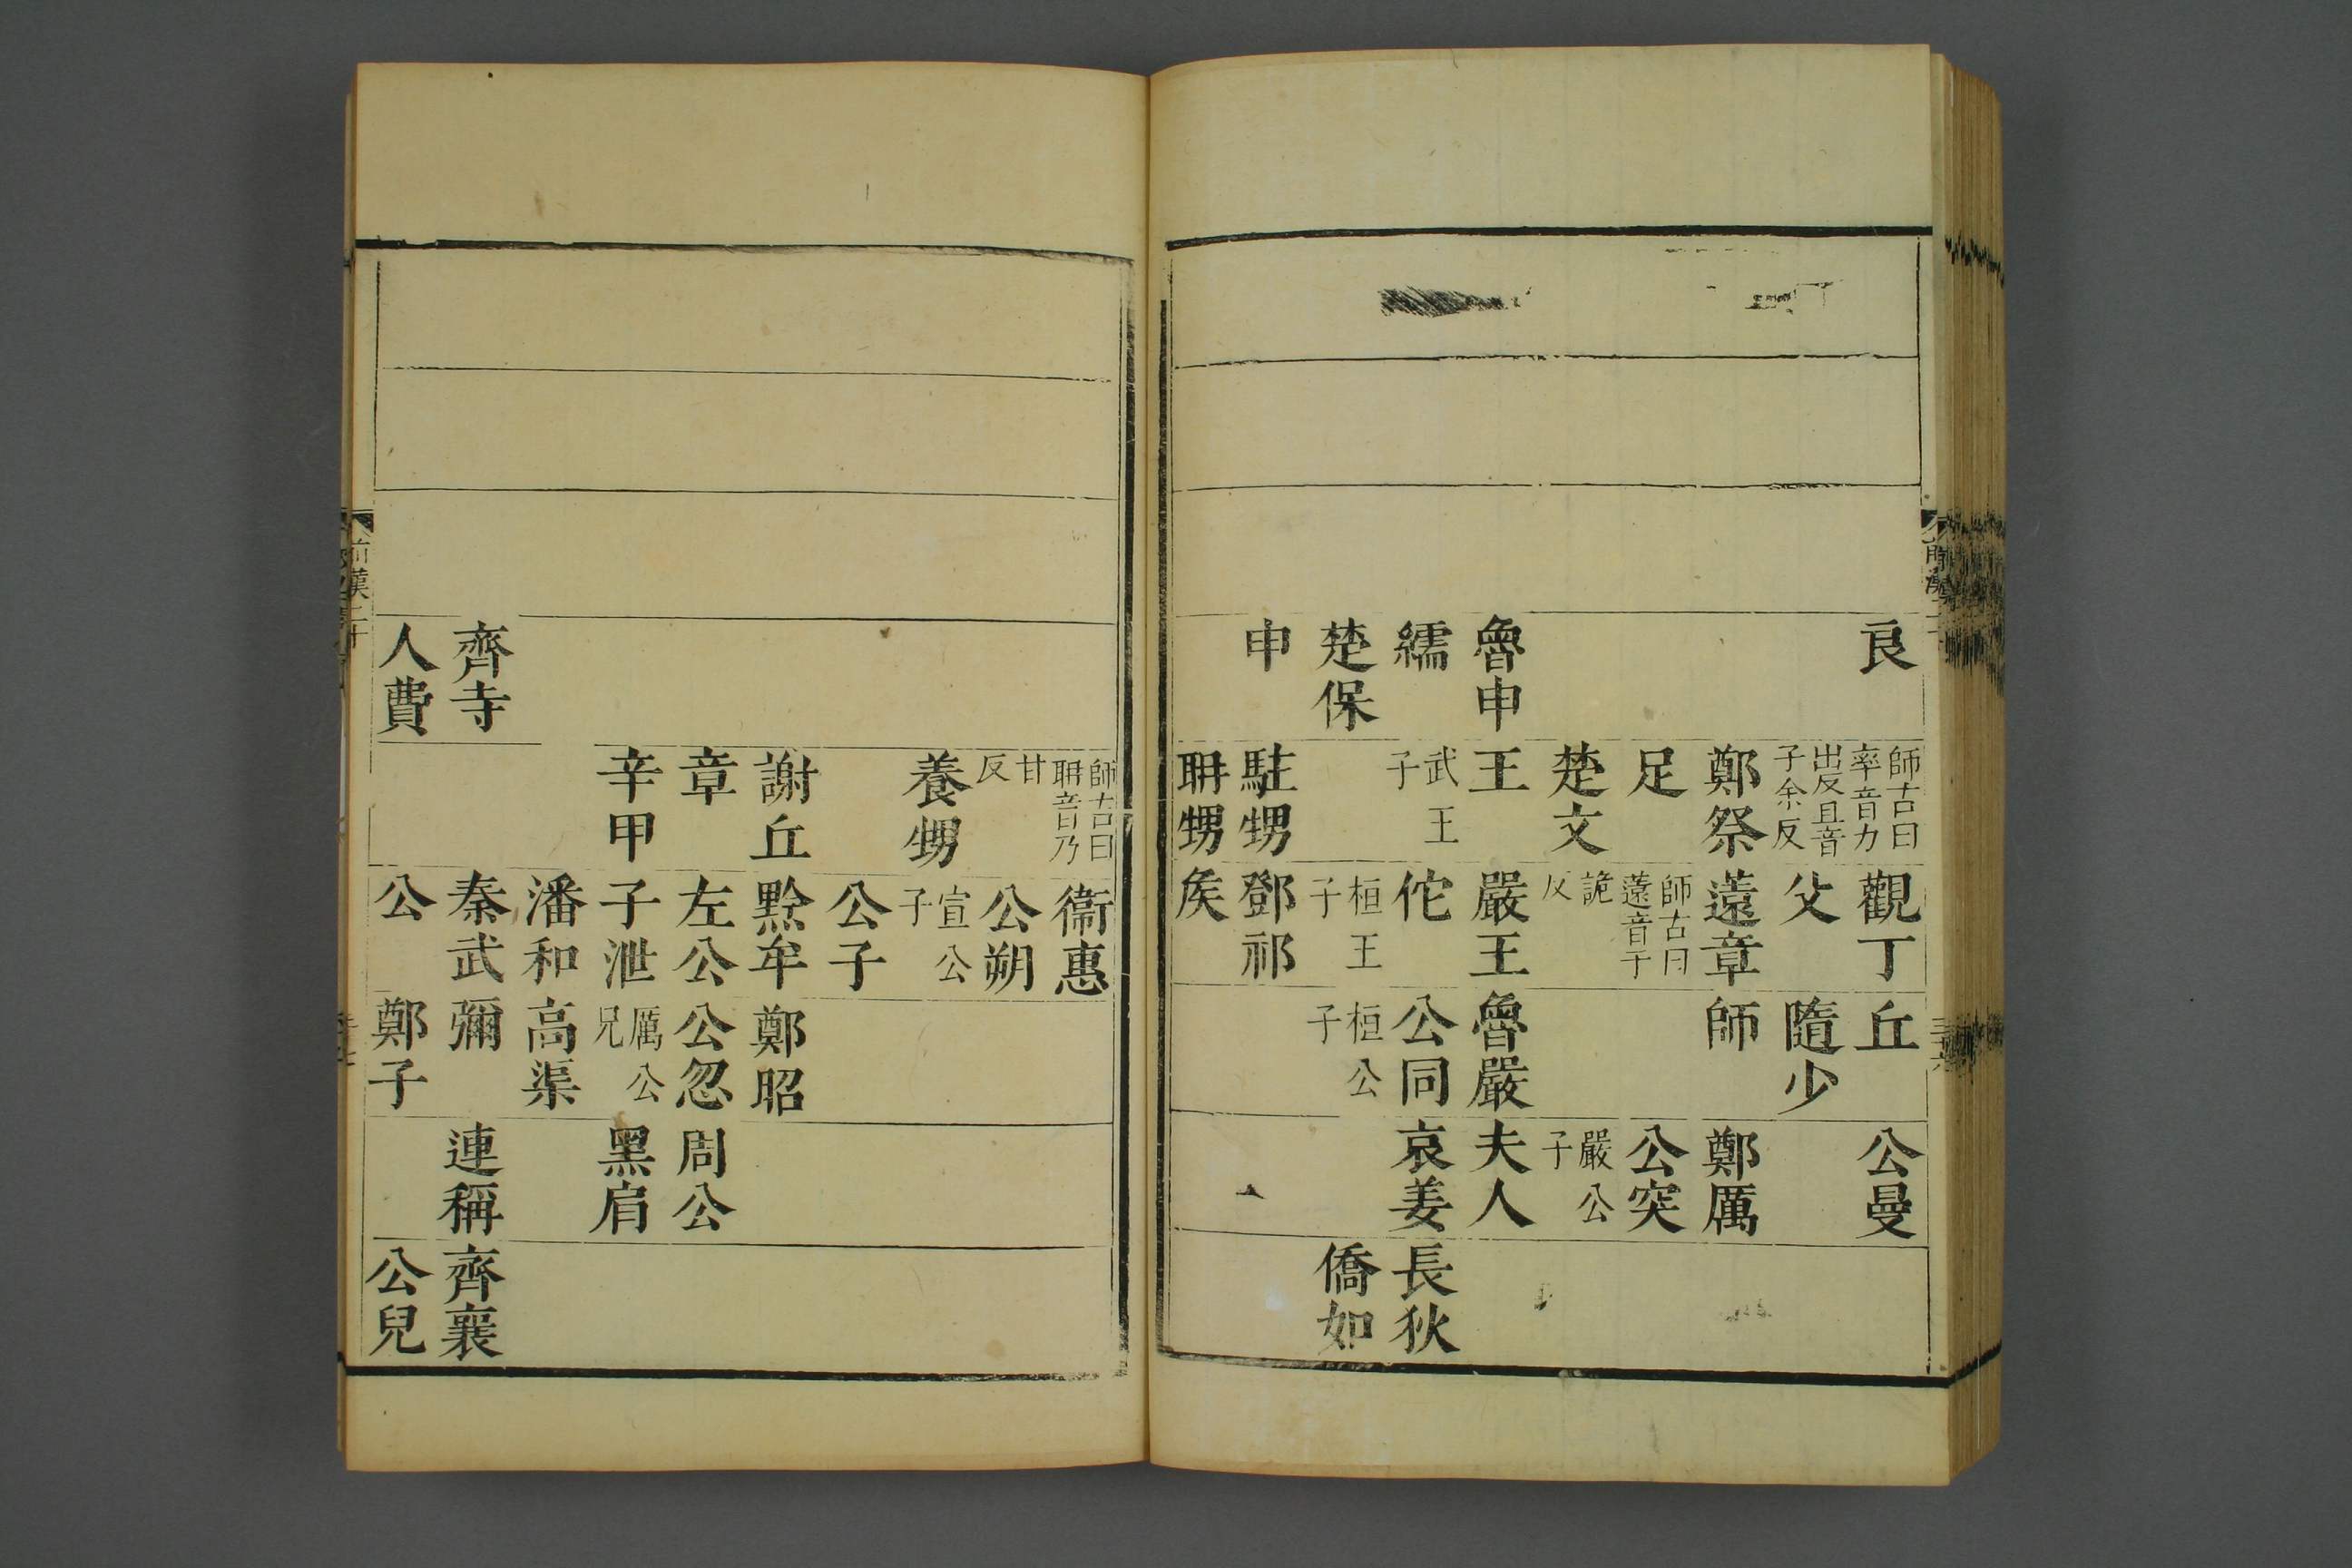 良 師古曰率音力 觀丁 丘 公曼
出反且音子余反 父 隨少
鄭祭 薳章 師 鄭厲
足 師古曰薳音于 公突
楚文 詭反 嚴公子
魯申 王 嚴王 魯嚴 夫人
繻 武王子 佗 公同 哀姜 長狄
楚保 桓王子 桓公子 僑如
申 駐甥 鄧祁
聃甥 矦
師古曰聃音乃 衞惠
甘反 公朔
養甥 宣公子
公子
謝丘 黔牟 鄭昭
章 左公 公忽 周公
辛甲 子泄 厲公兄 黑肩
潘和 高渠
齊寺 秦武 彌 連稱 齊襄
人費 公 鄭子 公兒
前漢二十